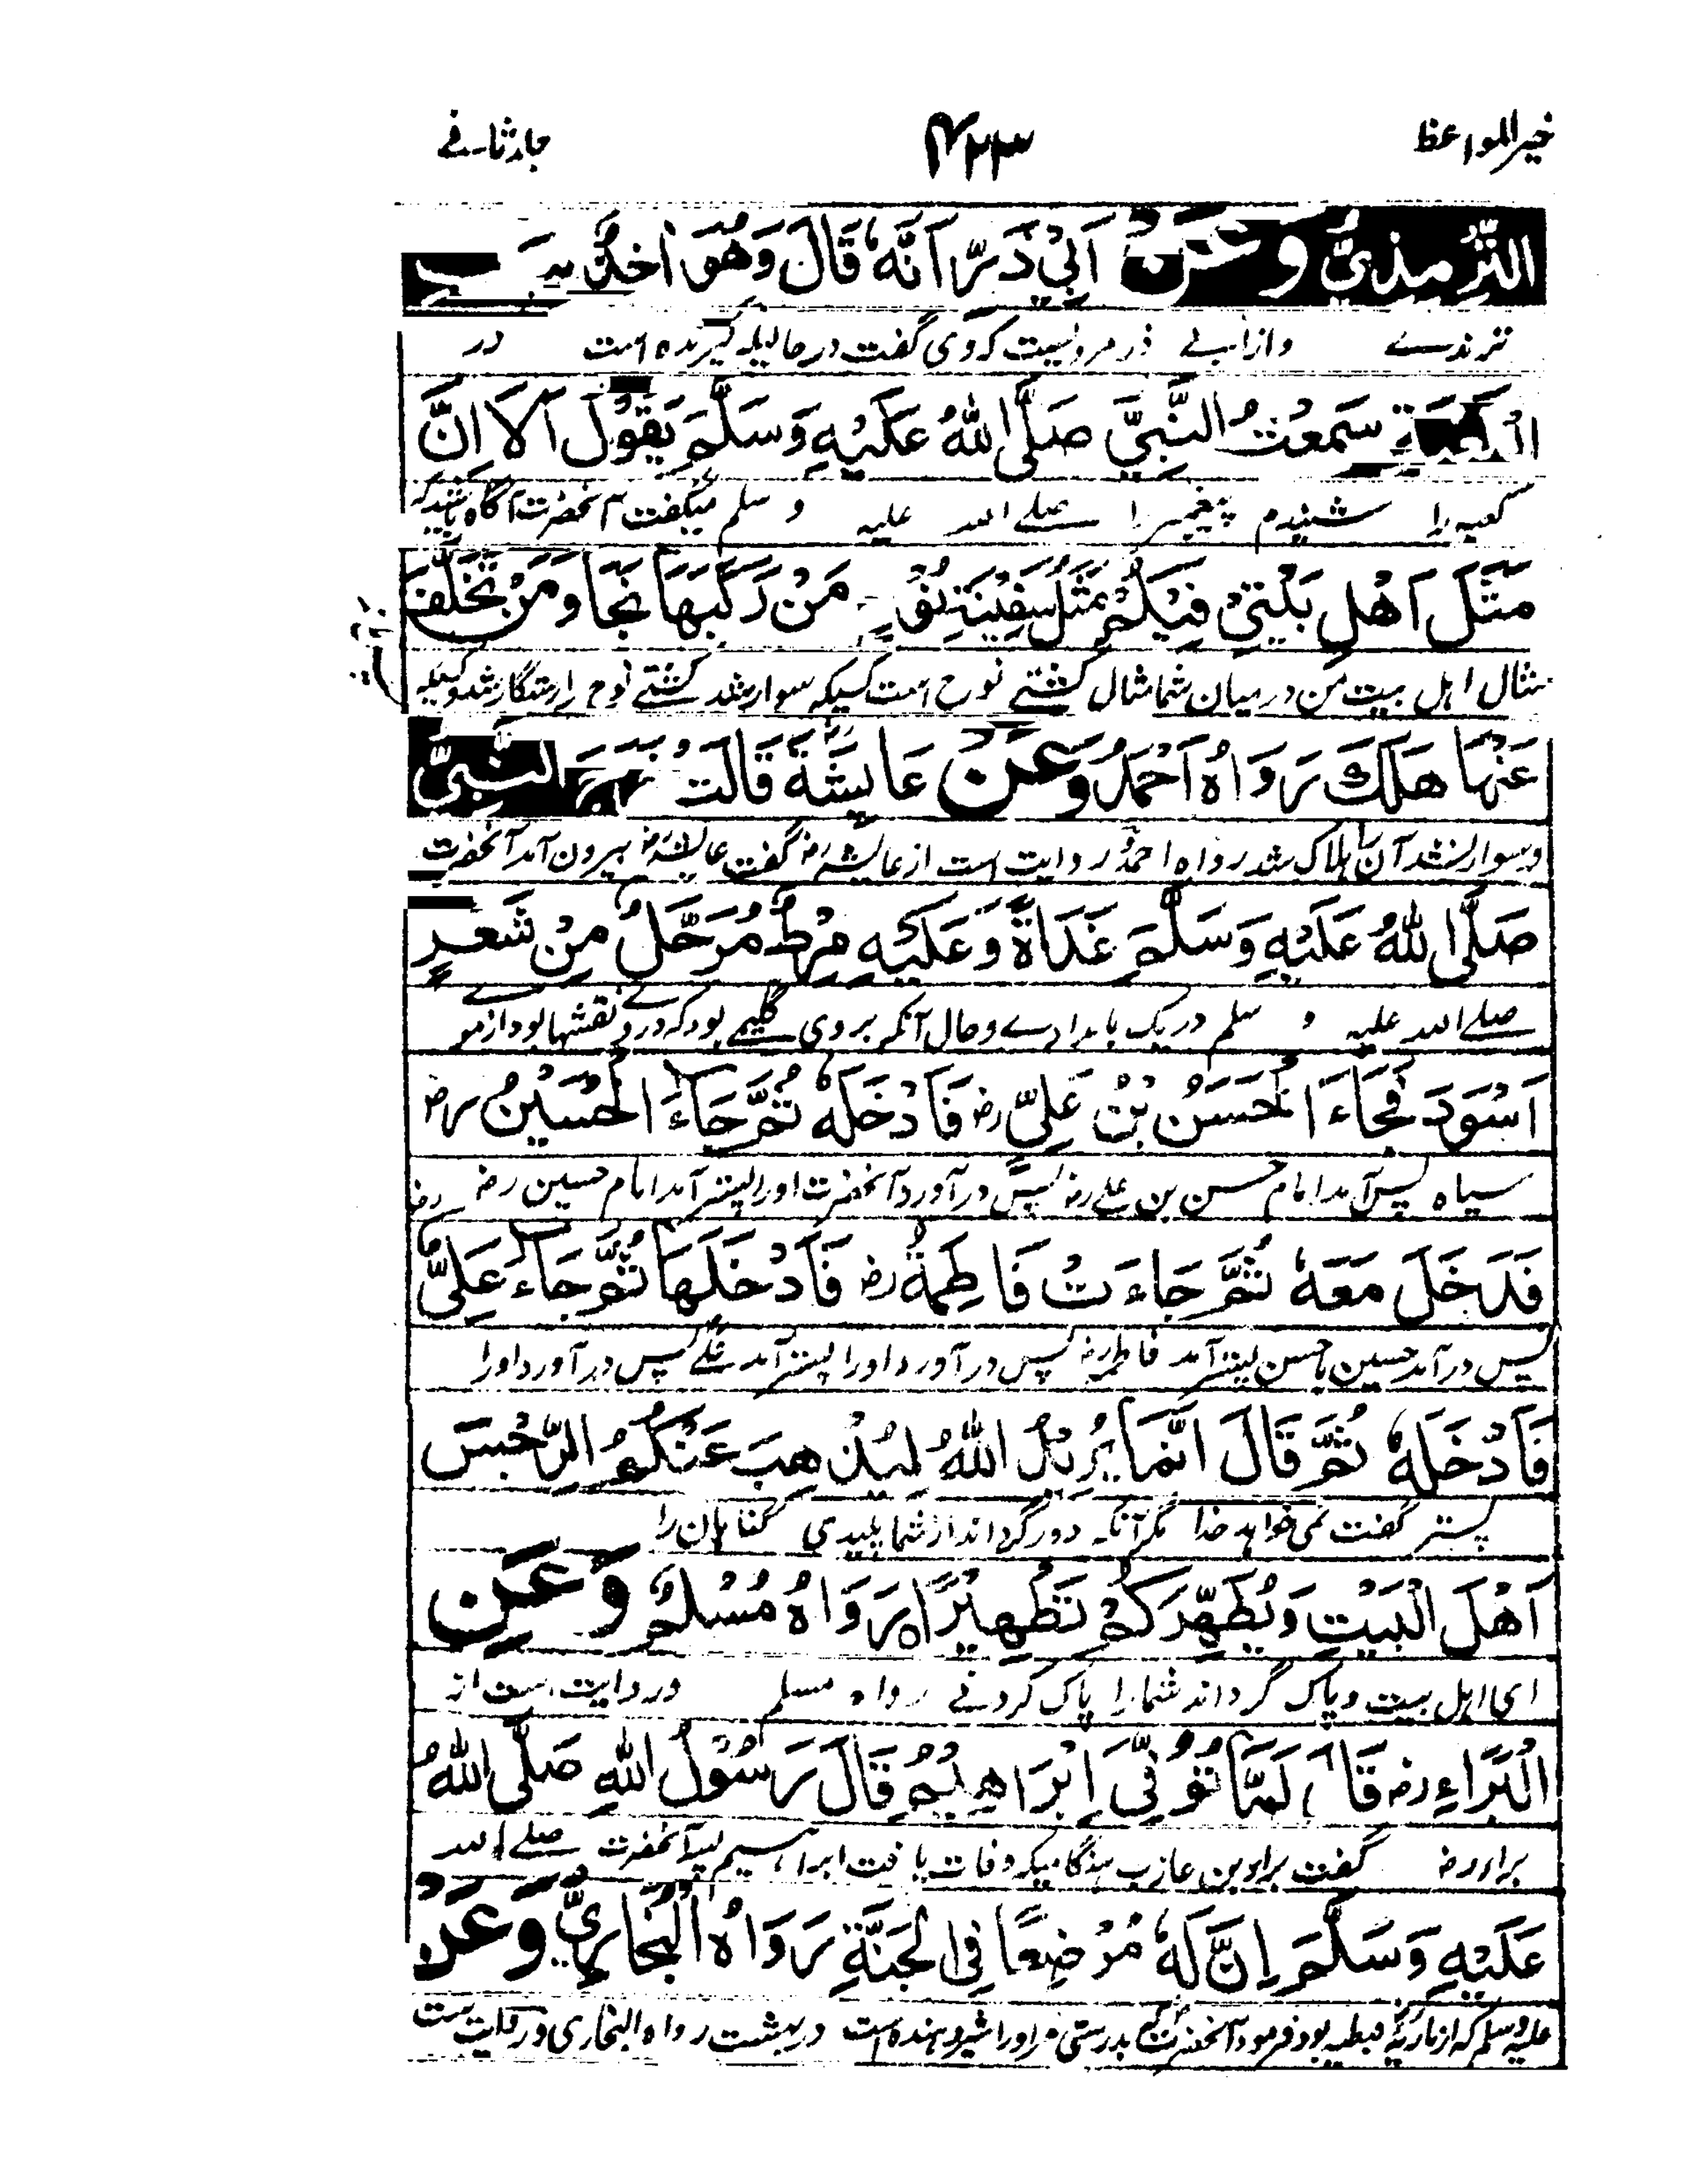 خیر المواعظ ۴۲۳ جلد ثانے
التِّرْمِذِيُّ وَعَنْ اَبِيْ ذَرٍّ اَنَّهٗ قَالَ وَهُوَ اٰخِذٌ
ترمذے و از ابے ذر مرویست که وی گفت در حالیکه گیرنده است در
سَمِعْتُ النَّبِيَّ صَلَّى اللهُ عَلَيْهِ وَسَلَّمَ يَقُوْلُ اَلَا اِنَّ
کعبه را شنیدم پیغمبر را صلے الله علیه و سلم میگفت آنحضرت آگاه باشید که
مَثَلَ اَهْلِ بَيْتِيْ فِيْكُمْ مَثَلُ سَفِيْنَةِ نُوْحٍ مَنْ رَكِبَهَا نَجَا وَمَنْ تَخَلَّفَ
مثال اهل بیت من در میان شما مثال کشتے نوح است کسیکه سوار شد کشتے نوح را رستگار شد و کسیکه
عَنْهَا هَلَكَ رَوَاهُ اَحْمَدُ وَعَنْ عَايِشَةَ رض قَالَتْ خَرَجَ النَّبِيُّ
و سوار نشد آن را هلاک شد رواه احمد و روایت است از عایشه رض گفت عایشه رض بیرون آمد آنحضرت
صَلَّى اللهُ عَلَيْهِ وَسَلَّمَ غَدَاةً وَعَلَيْهِ مِرْطٌ مُرَحَّلٌ مِنْ شَعْرٍ
صلے الله علیه و سلم در یک بامدادے و حال آنکه بر وی گلیمے بود که در وے نقشها بود از مو
اَسْوَدَ فَجَاءَ الْحَسَنُ بْنُ عَلِيٍّ رض فَاَدْخَلَهٗ ثُمَّ جَاءَ الْحُسَيْنُ رض
سیاه پس آمد امام حسن بن علے رض پس در آورد آنحضرت او را پستر آمد امام حسین رض
فَدَخَلَ مَعَهٗ ثُمَّ جَاءَتْ فَاطِمَةُ رض فَاَدْخَلَهَا ثُمَّ جَاءَ عَلِيٌّ
پس در آمد حسین با حسن پستر آمد فاطمه رض پس در آورد او را پستر آمد علے پس در آورد او را
فَاَدْخَلَهٗ ثُمَّ قَالَ اِنَّمَا يُرِيْدُ اللهُ لِيُذْهِبَ عَنْكُمُ الرِّجْسَ
پستر گفت نمی خواهد خدا مگر آنکه دور گرداند از شما پلیدی گناهان را
اَهْلَ الْبَيْتِ وَيُطَهِّرَكُمْ تَطْهِيْرًا رَوَاهُ مُسْلِمٌ وَعَنِ
ای اهل بیت و پاک گرداند شما را پاک کردنے رواه مسلم و روایت است از
الْبَرَاءِ رض قَالَ لَمَّا تُوُفِّيَ اِبْرَاهِيْمُ قَالَ رَسُوْلُ اللهِ صَلَّى اللهُ
براء رض گفت براء بن عازب هنگامیکه وفات یافت ابراهیم پسر آنحضرت صلے الله
عَلَيْهِ وَسَلَّمَ اِنَّ لَهٗ مُرْضِعًا فِي الْجَنَّةِ رَوَاهُ الْبُخَارِيُّ وَعَنْ
علیه و سلم که از ماریه قبطیه بود فرمود آنحضرت بدرستی مر او را شیر دهنده است در بهشت رواه البخاری و روایت ست